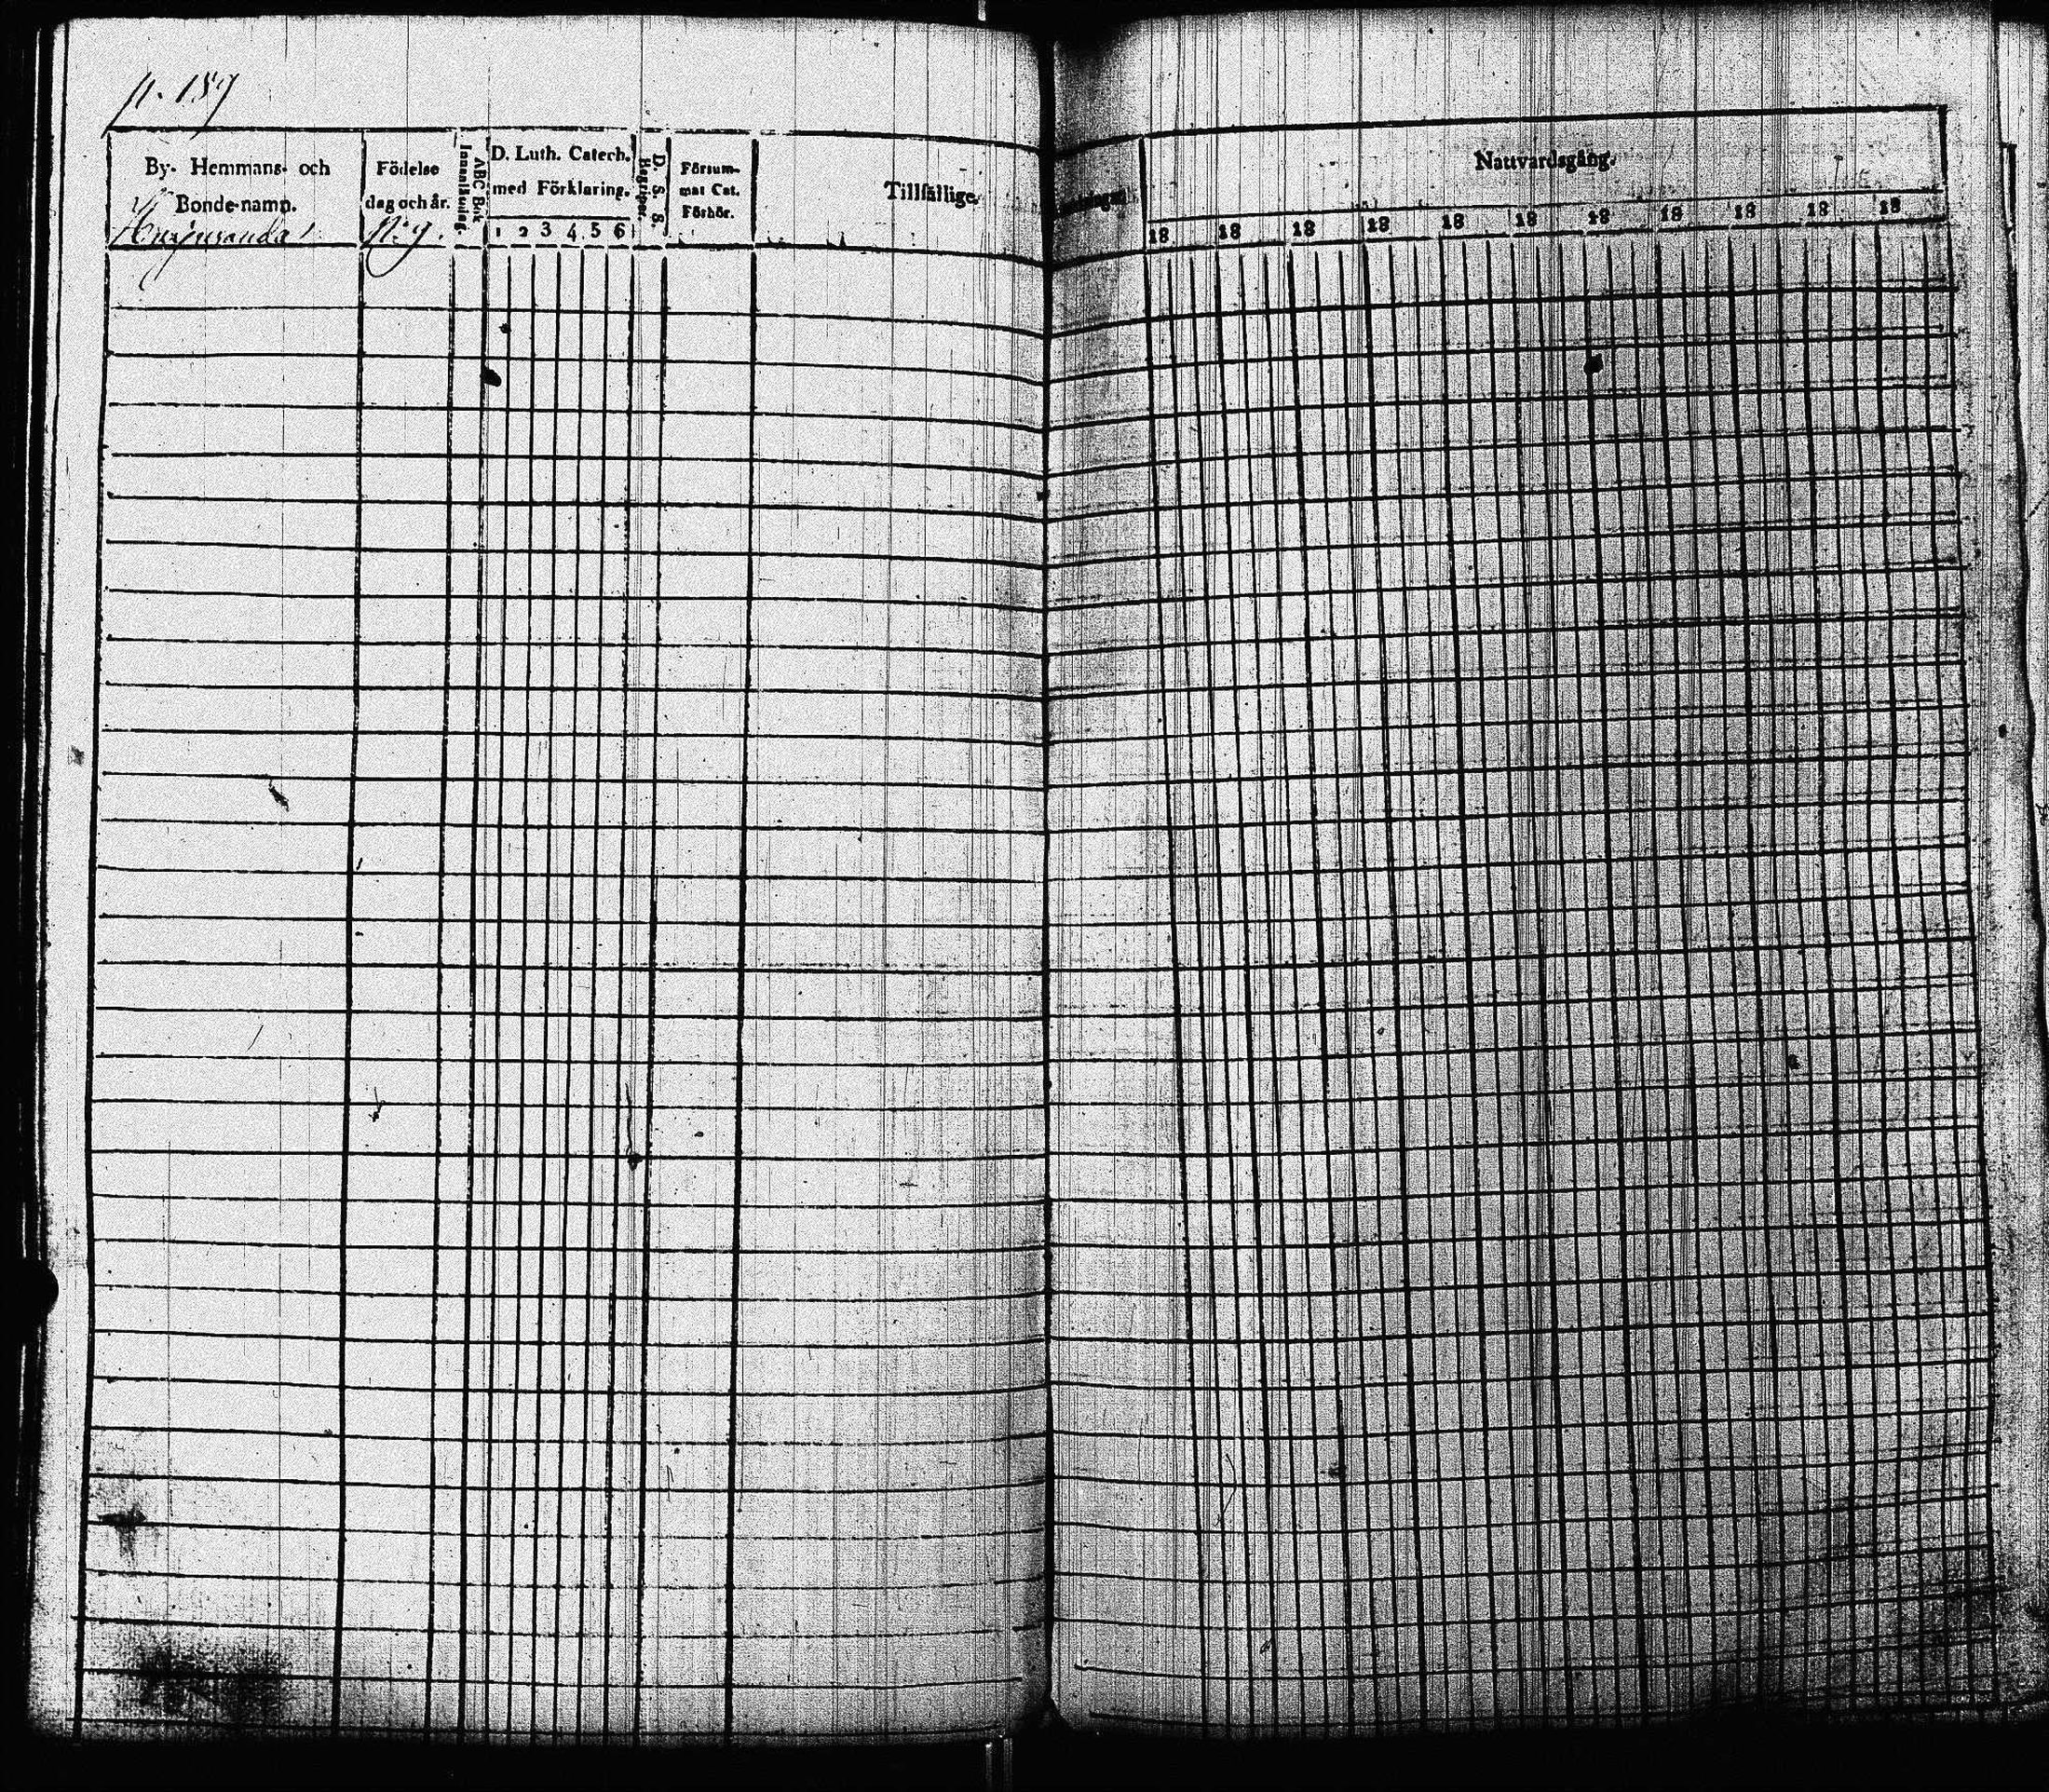 p. 157
By- Hemmans- och
Bonde-namn.
Födelse
dag och år.
N:9.
Innanläsning.
ABC Bok
D. Luth. Catech.
med Förklaring.
1 2 3 4 5 6
Begreper.
D. S. S.
Försum-
mat Cat.
Förhör.
Tillfällige
Nattvardsgång.
18 18 18 18 18 18 18 18 18 18 18